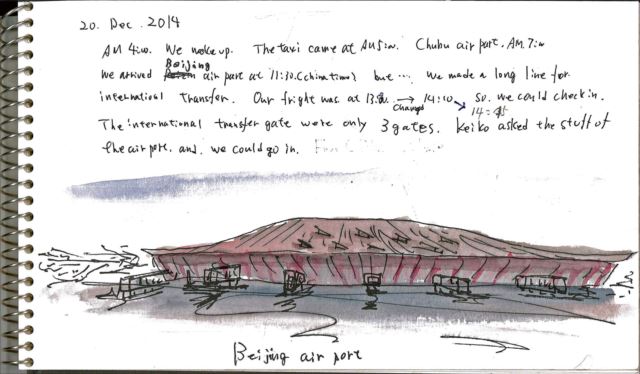 20. Dec. 2014
AM 4:00. We wake up. The taxi came at AM 5:00. Chubu air port. AM. 7:00
Beijing
we arrived air port at 11:30. (china time) but ... We made a long line for
international transfer. Our fright was at 13: → 14:10 So. we could check in.
Change 14:
The international transfer gate were only 3 gates. Keiko asked the stuff of
the air port. and. we could go in.
Beijing air port